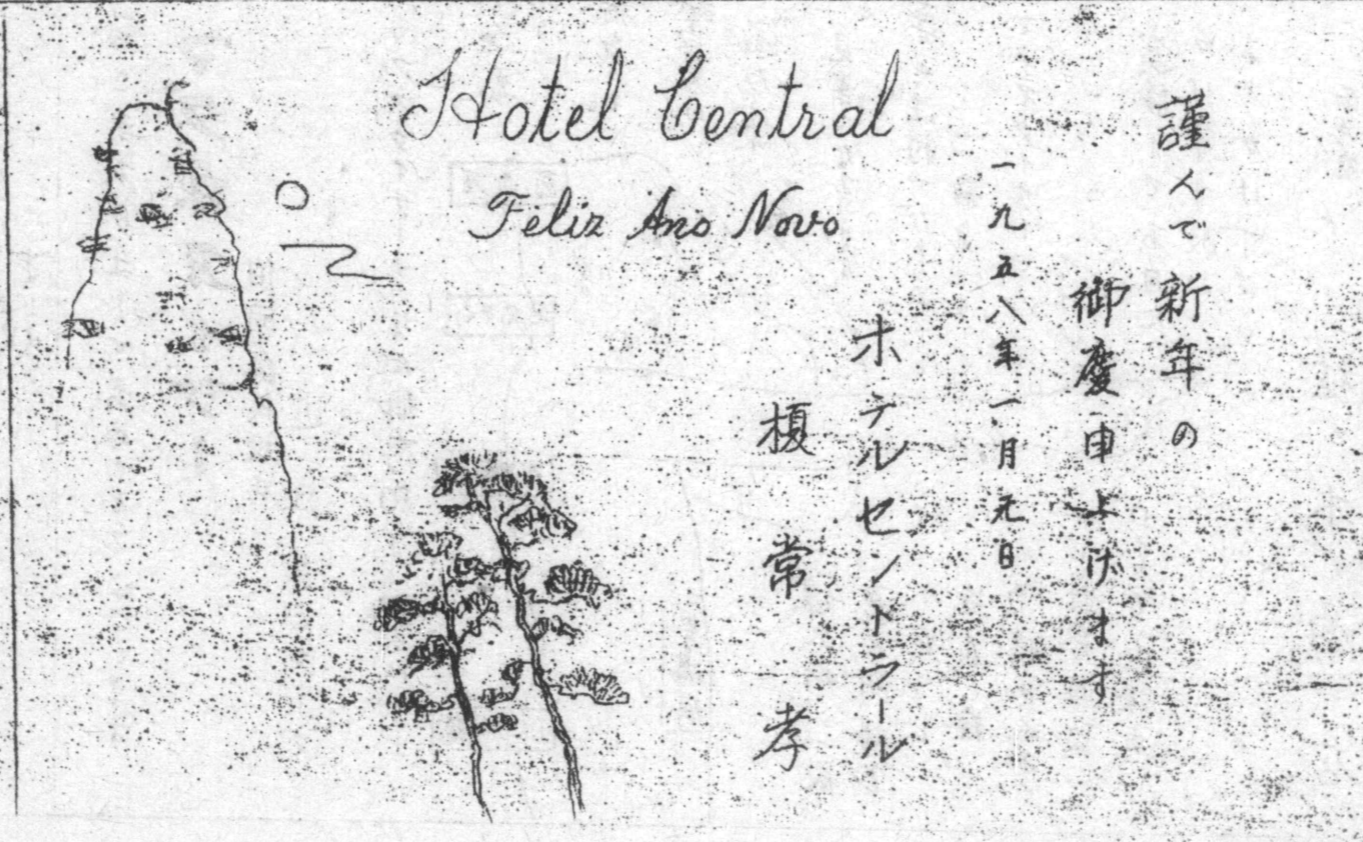 Hotel Central
Feliz Ano Novo
謹んで新年の
御慶申上げます
一九五八年一月元日
ホテルセントラール
榎常孝